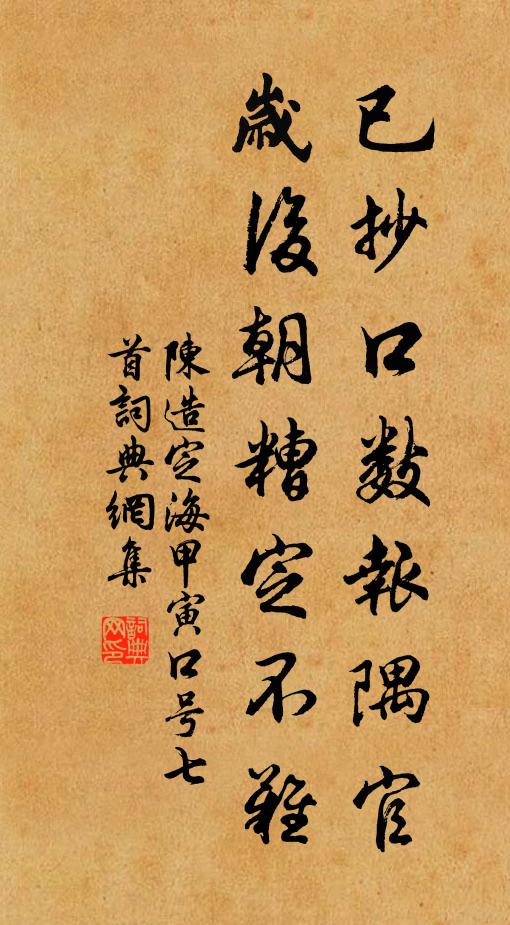 已抄口数報隅官
歳後朝糟定不難
陳造定海甲寅口号七
首詞典網集
詞典网印